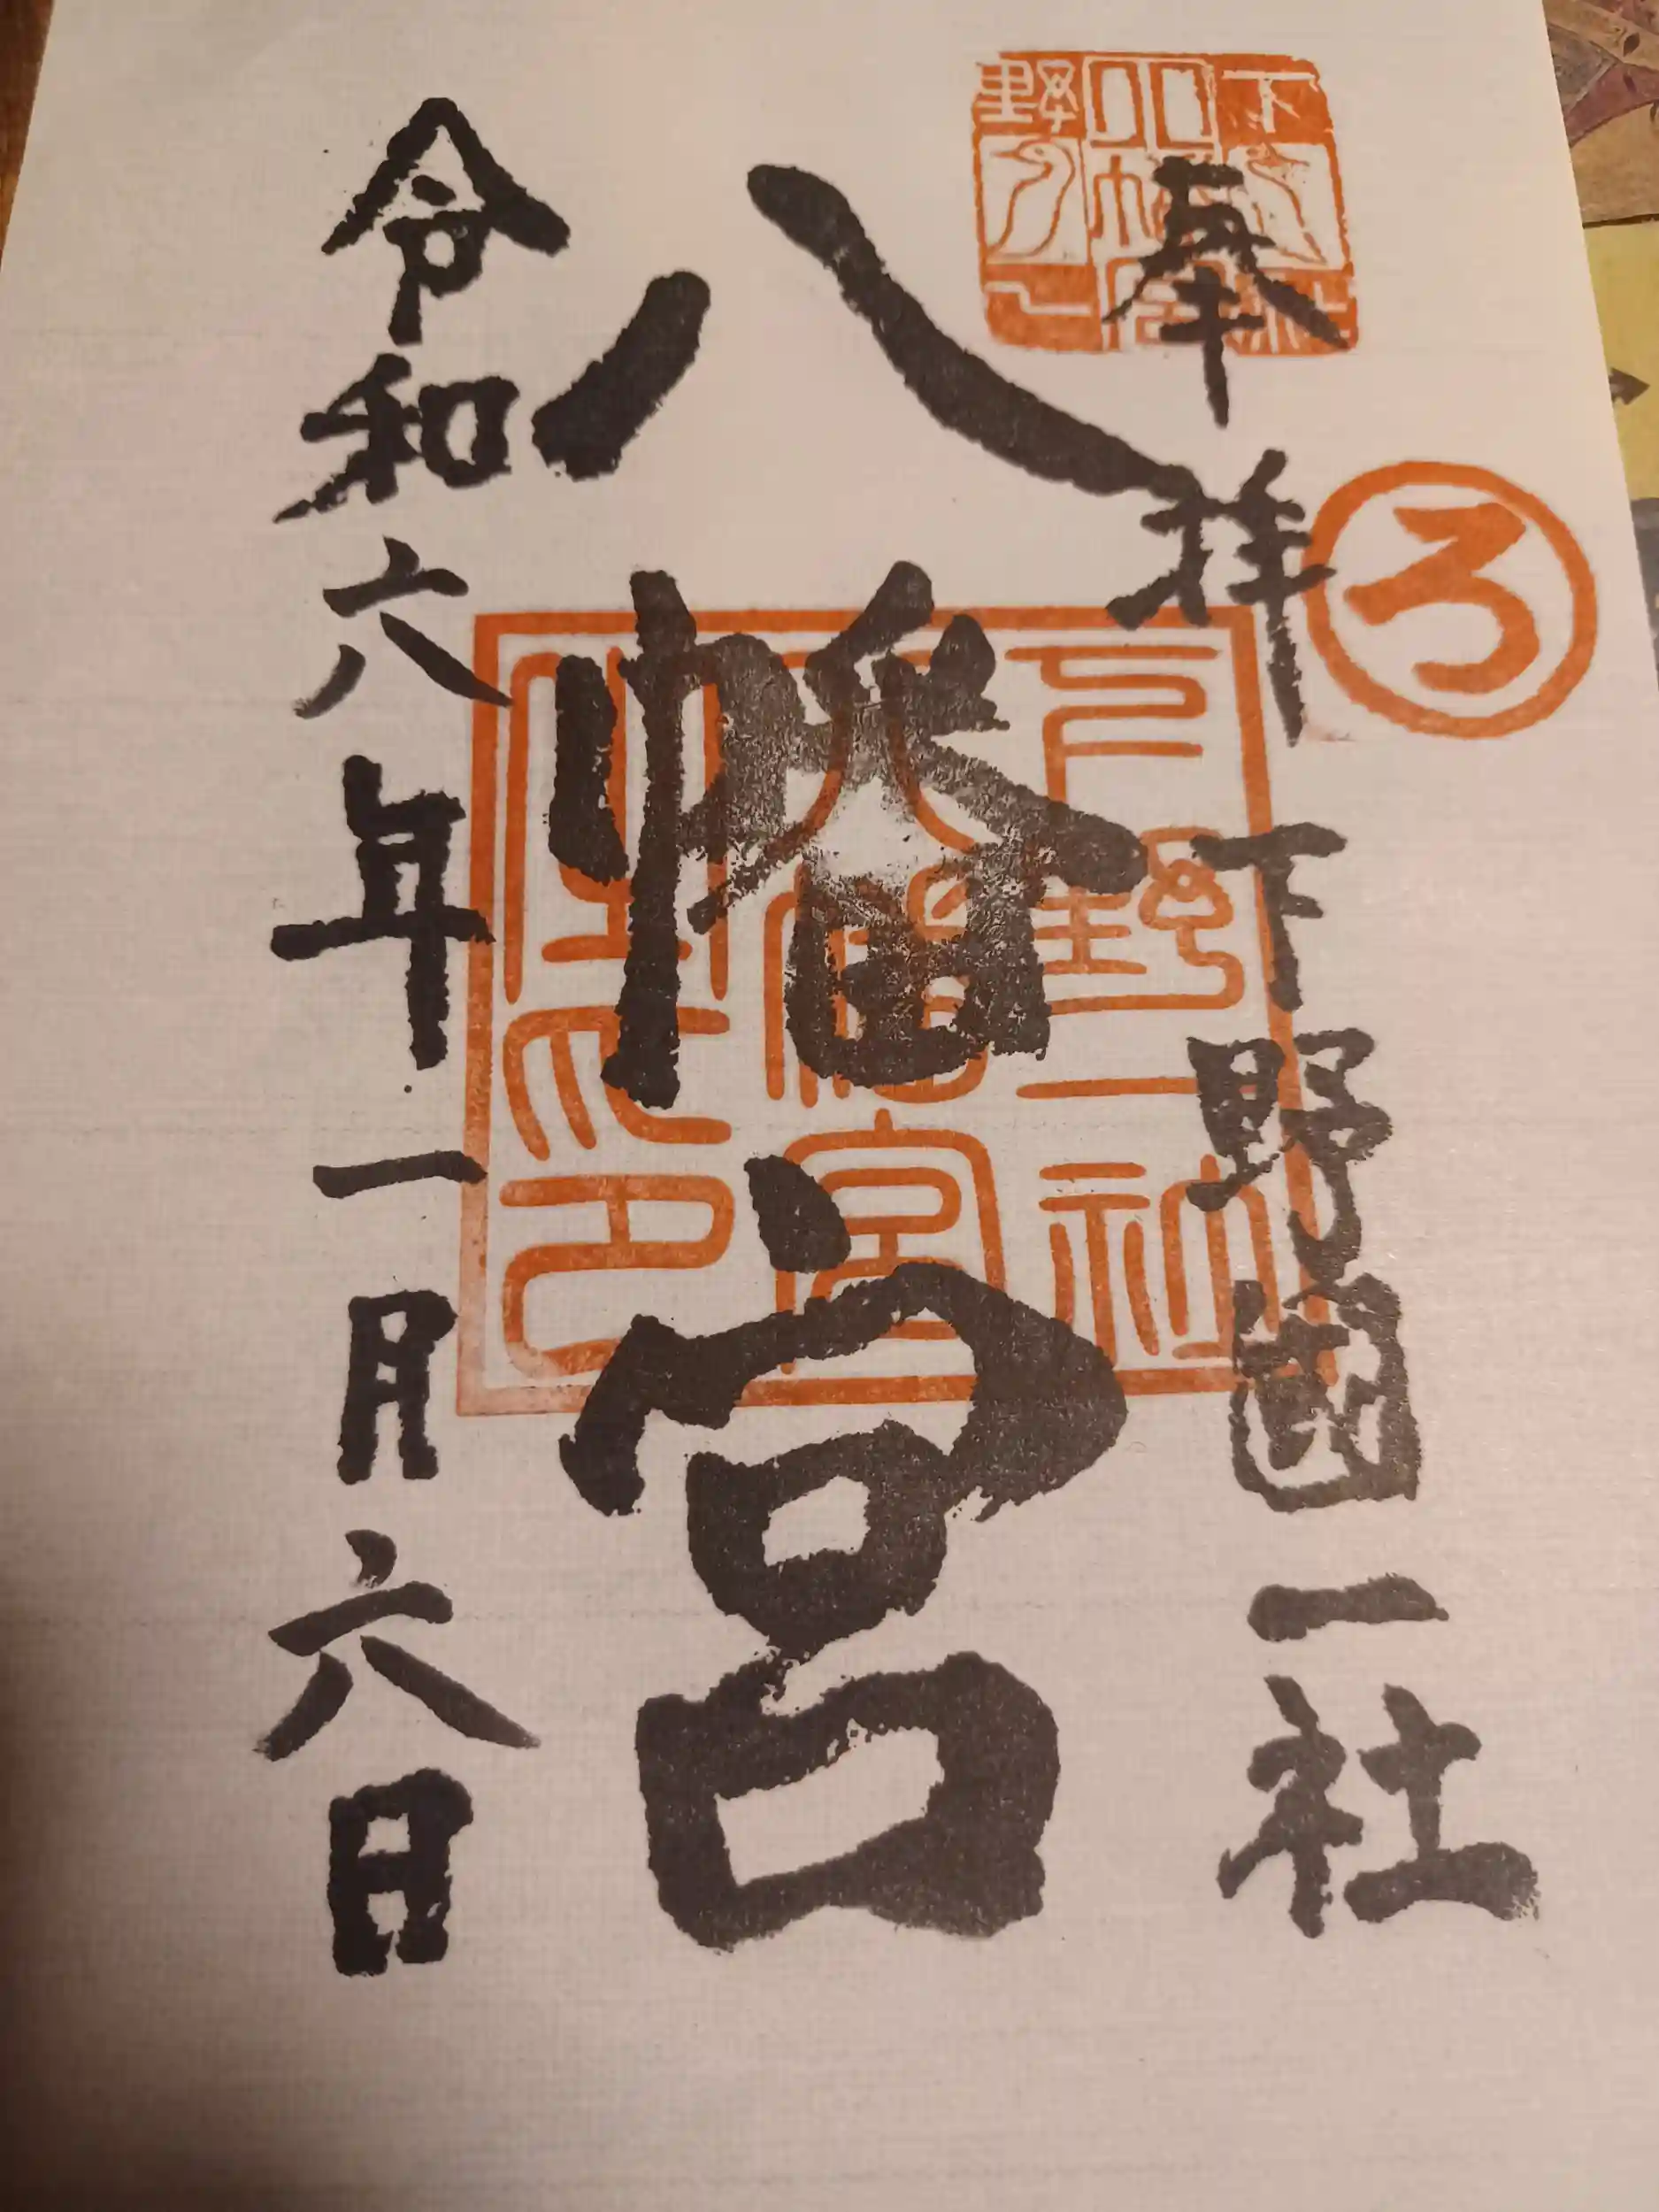 奉拝
下野國一社
八幡宮
令和六年一月六日
ろ
下野一社
八幡宮